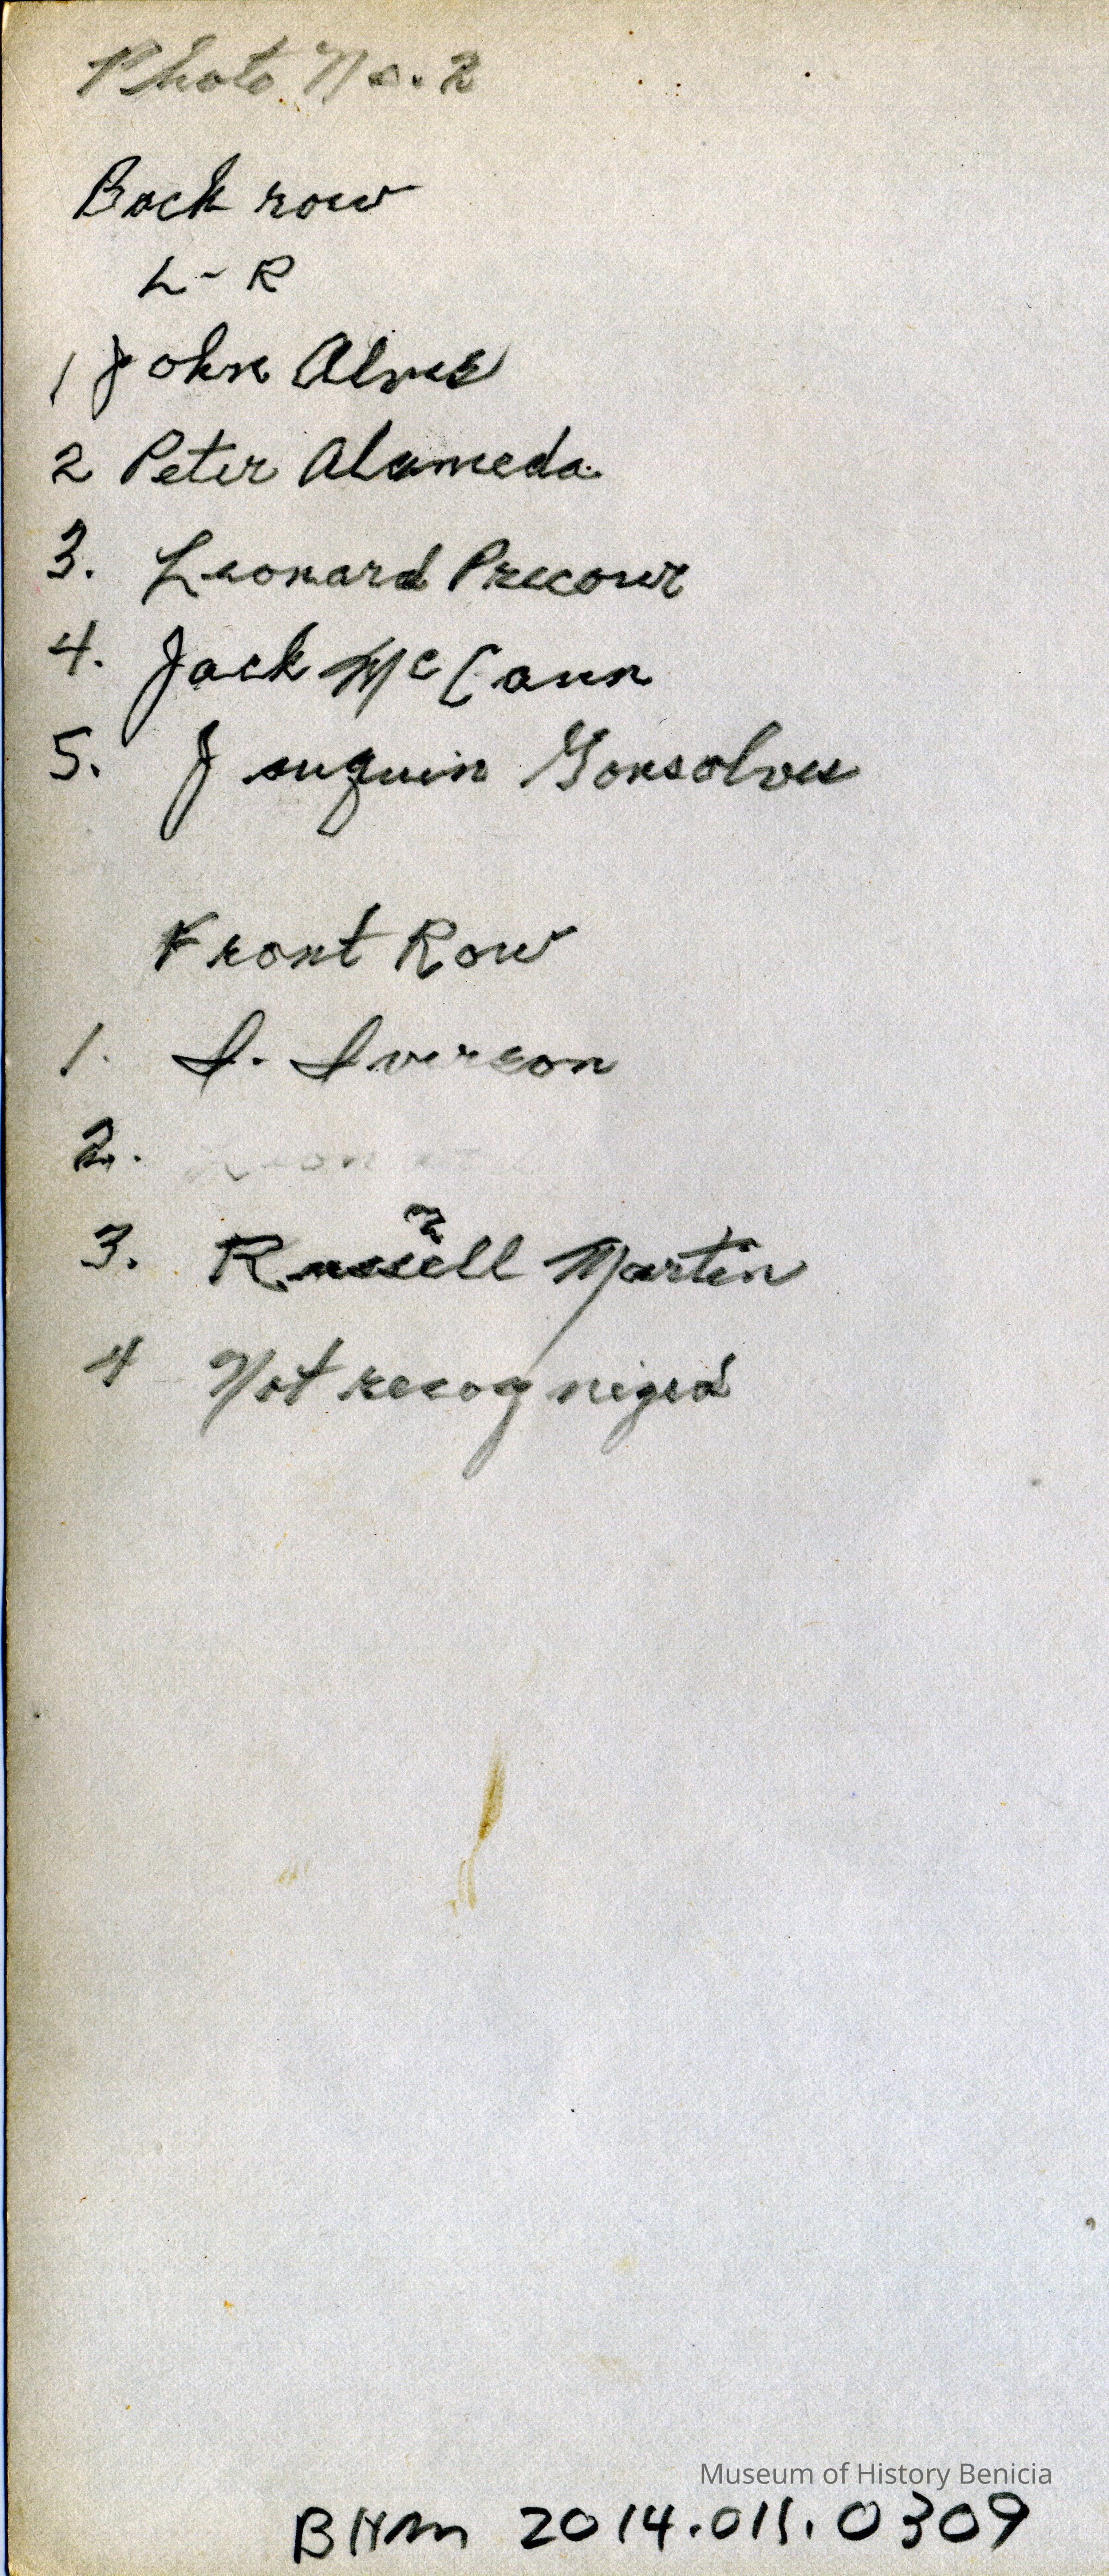 Photo No. 2
Back row
L - R
1 John Alves
2 Peter Alameda
3. Leonard Precour
4. Jack McCann
5. Jouquin Gonsolves
Front Row
1. I. Iverson
2.
3. Russell Martin
4 Not recognized
Museum of History Benicia
BHM 2014.011.0309